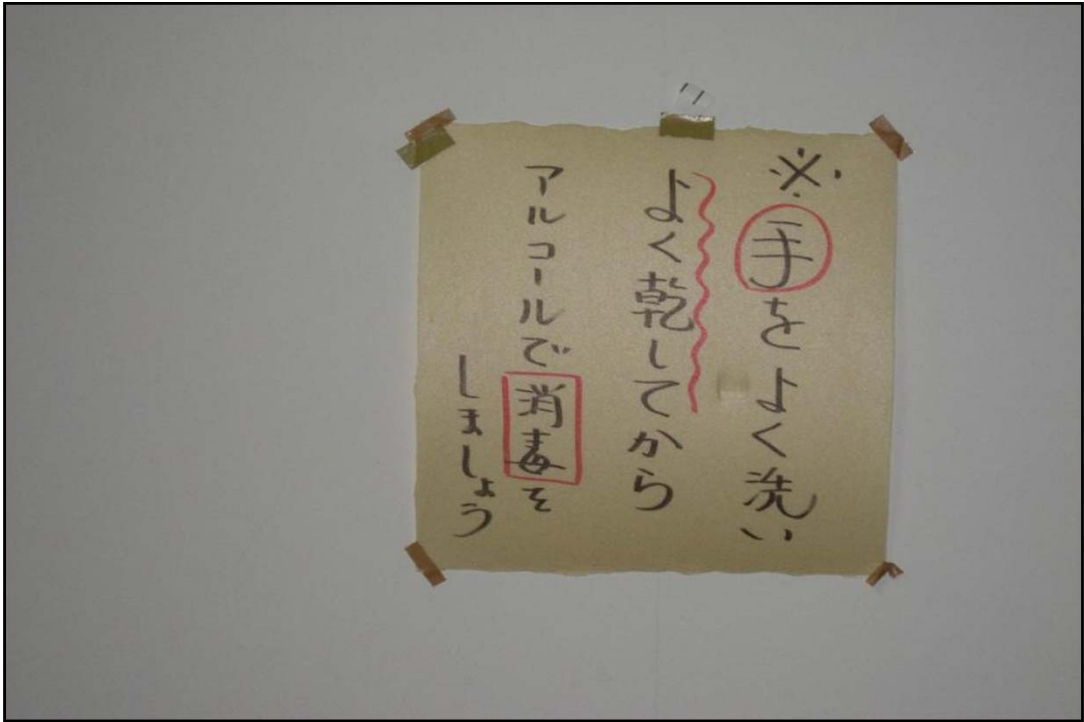 ※手をよく洗い
よく乾してから
アルコールで消毒を
しましょう